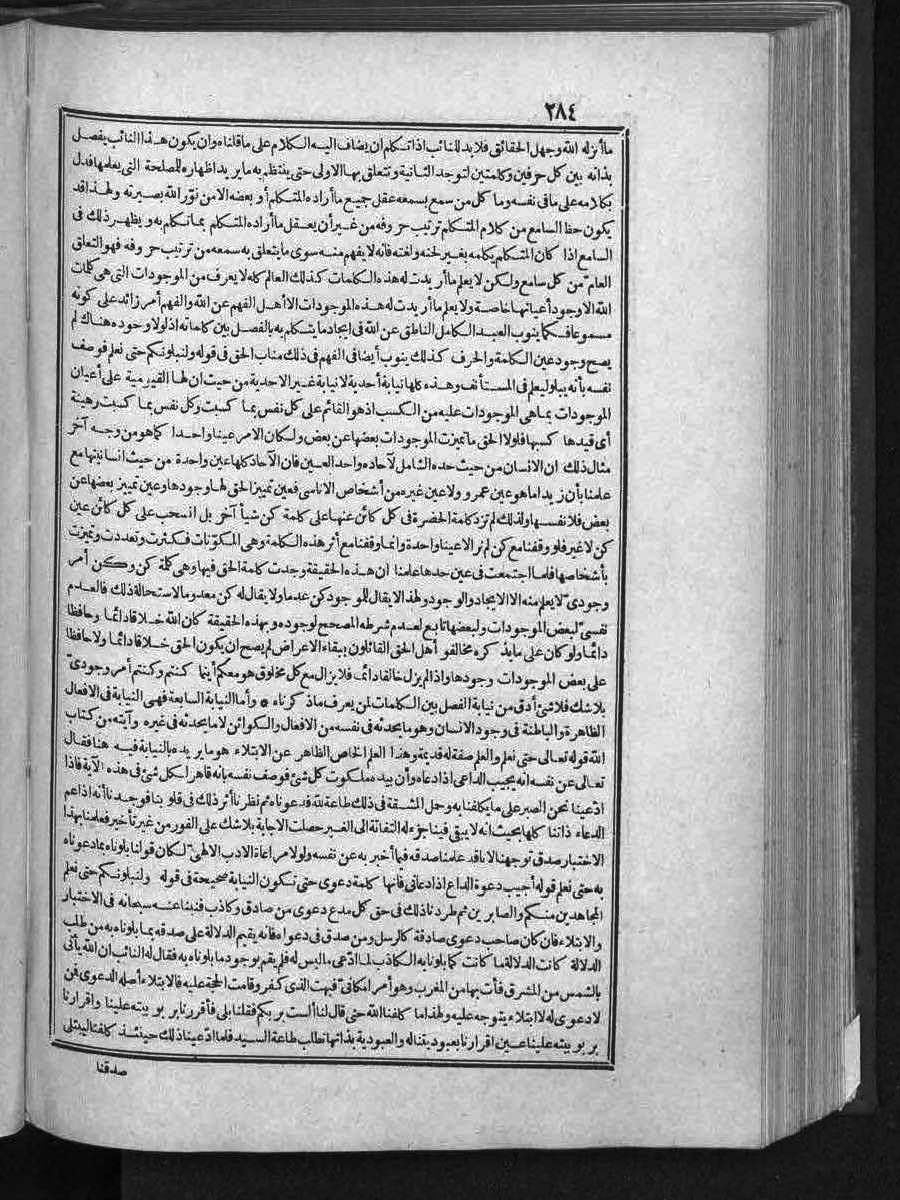 ٢٨٤
ما أنزله الله وجهل الحقائق فلا بد للنائب اذا تكلم أن يضاف اليه الكلام على ما قلناه وان يكون هذا النائب يفصل
بذاته بين كل حرفين وكلمتين لتوجد الثانية وتتعلق بها الاولى حتى ينتظم به ما يريد اظهاره للمصلحة التي يعلمها فدل
بكلامه على ما في نفسه وما كل من سمع بسمعه عقل جميع ما أراده المتكلم أو بعضه الا من نوّر الله بصيرته ولهذا قد
يكون حظ السامع من كلام المتكلم ترتيب حروفه من غير أن يعقل ما أراده المتكلم بما تكلم به ويظهر ذلك في
السامع اذا كان المتكلم يكلمه بغير لحنه ولغته فانه لا يفهم منه سوى ما يتعلق به سمعه من ترتيب حروفه فهو التعلق
العام من كل سامع ولكن لا يعلم ما أريدت له هذه الكلمات كذلك العالم كله لا يعرف من الموجودات التي هي كلمات
الله الا وجود أعيانها خاصة ولا يعلم ما أريدت له هذه الموجودات الا أهل الفهم عن الله والفهم أمر زائد على كونه
مسموعا فكما ينوب العبد الكامل الناطق عن الله في ايجاد ما يتكلم به بالفصل بين كلماته اذ لولا وجوده هناك لم
يصح وجود عين الكلمة والحرف كذلك ينوب أيضا في الفهم في ذلك مناب الحق في قوله ولنبلونكم حتى نعلم فوصف
نفسه بأنه يبلو ليعلم في المستأنف وهذه كلها نيابة أحدية لا نيابة غير الاحدية من حيث ان لها القيومية على أعيان
الموجودات بما هي الموجودات عليه من الكسب اذ هو القائم على كل نفس بما كسبت وكل نفس بما كسبت رهينة
أي قيدها كسبها فلولا الحق ما تميزت الموجودات بعضها عن بعض ولكان الامر عينا واحدا كما هو من وجه آخر
مثال ذلك ان الانسان من حيث حده الشامل لآحاده واحد العين فان الآحاد كلها عين واحدة من حيث انسانيتها مع
علمنا بأن زيدا ما هو عين عمرو ولا عين غيره من أشخاص الاناسي فعين تمييز الحق لها وجودها وعين تمييز بعضها عن
بعض فلأنفسها ولذلك لم تزد كلمة الحضرة في كل كائن عنها على كلمة كن شيأ آخر بل انسحب على كل كائن عين
كن لا غير فلو وقفنا مع كن لم نر الا عينا واحدة وانما وقفنا مع أثر هذه الكلمة وهي المكوّنات فكثرت وتعددت وتميزت
بأشخاصها فلما اجتمعت في عين حدها علمنا ان هذه الحقيقة وجدت كلمة الحق فيها وهي كلمة كن وكن أمر
وجوديّ لا يعلم منه الا الايجاد والوجود ولهذا لا يقال للموجود كن عدما ولا يقال له كن معدوما لاستحالة ذلك فالعدم
نفسيّ لبعض الموجودات ولبعضها تابع لعدم شرطه المصحح لوجوده وبهذه الحقيقة كان الله خلاقا دائما وحافظا
دائما ولو كان على ما يذكره مخالفو أهل الحق القائلون ببقاء الاعراض لم يصح ان يكون الحق خلاقا دائما ولا حافظا
على بعض الموجودات وجودها واذا لم يزل خالقا دائما فلا يزال مع كل مخلوق هو معكم أينما كنتم وكنتم أمر وجوديّ
بلا شك فلا شئ أدق من نيابة الفصل بين الكلمات لمن يعرف ما ذكرناه * وأما النيابة السابعة فهي النيابة في الافعال
الظاهرة والباطنة في وجود الانسان وهو ما يحدثه في نفسه من الافعال والكوائن لا ما يحدثه في غيره وآيته من كتاب
الله قوله تعالى حتى نعلم والعلم صفة له قديمة وهذا العلم الخاص الظاهر عن الابتلاء هو ما يريده بالنيابة فيه هنا فقال
تعالى عن نفسه انه يجيب الداعي اذا دعاه وأن بيده ملكوت كل شئ فوصف نفسه بانه قاهر لكل شئ في هذه الآية فاذا
ادّعينا نحن الصبر على ما يكلفنا به وحمل المشقة في ذلك طاعة لله فدعوناه ثم نظرنا أثر ذلك في قلوبنا فوجدنا أنه اذا عم
الدعاء ذاتنا كلها بحيث انه لا يبقى فينا جزء له التفاتة الى الغير حصلت الاجابة بلا شك على الفور من غير تأخير فعلمنا بهذا
الاختبار صدق توجهنا لا نا قد علمنا صدقه فيما أخبر به عن نفسه ولولا مراعاة الادب الالهيّ لكان قولنا بلوناه بما دعوناه
به حتى نعلم قوله أجيب دعوة الداع اذا دعاني فانها كلمة دعوى حتى تكون النيابة صحيحة في قوله ولنبلونكم حتى نعلم
المجاهدين منكم والصابرين ثم طردنا ذلك في حق كل مدع دعوى من صادق وكاذب فنبنا عنه سبحانه في الاختبار
والابتلاء فان كان صاحب دعوى صادقة كالرسل ومن صدق في دعواه فانه يقيم الدلالة على صدقه بما بلوناه به من طلب
الدلالة كانت الدلالة ما كانت كما بلونا به الكاذب لما ادّعى ما ليس له فلم يقم بوجود ما بلوناه به فقال له النائب ان الله يأتي
بالشمس من المشرق فأت بها من المغرب وهو أمر امكانيّ فبهت الذي كفر وقامت الحجة عليه فالابتلاء أصله الدعوى فمن
لا دعوى له لا ابتلاء يتوجه عليه ولهذا ما كلفنا الله حتى قال لنا ألست بربكم فقلنا بلى فأقررنا بربوبيته علينا واقرارنا
بربوبيته علينا عين اقرارنا بعبوديتنا له والعبودية بذاتها تطلب طاعة السيد فلما ادّعينا ذلك حينئذ كلفنا ليبتلي
صدقنا